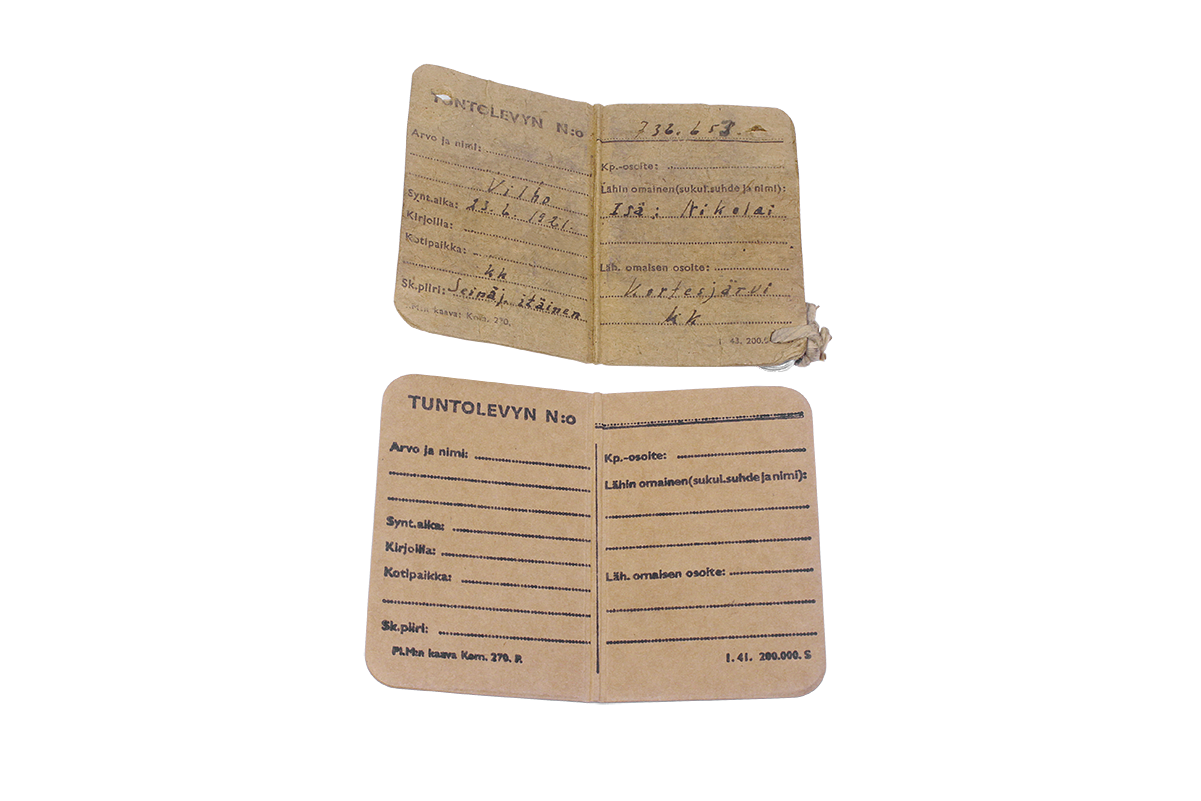 TUNTOLEVYN N:o
Arvo ja nimi:
Vilho
Synt.aika: 23. 6. 1921.
Kirjoilla:
Kotipaikka:
kk
Sk.piiri: Seinäj. itäinen
Pl.M:n kaava: Kom. 270.
736.653.
Kp.-osoite:
Lähin omainen(sukul.suhde ja nimi):
Isä: Nikolai
Läh. omaisen osoite:
Kortesjärvi
kk
1 43. 200.0
TUNTOLEVYN N:o
Arvo ja nimi:
Synt.aika:
Kirjoilla:
Kotipaikka:
Sk.piiri:
Pl.M:n kaava Kom. 270. P.
Kp.-osoite:
Lähin omainen(sukul.suhde ja nimi):
Läh. omaisen osoite:
1. 41. 200.000. S